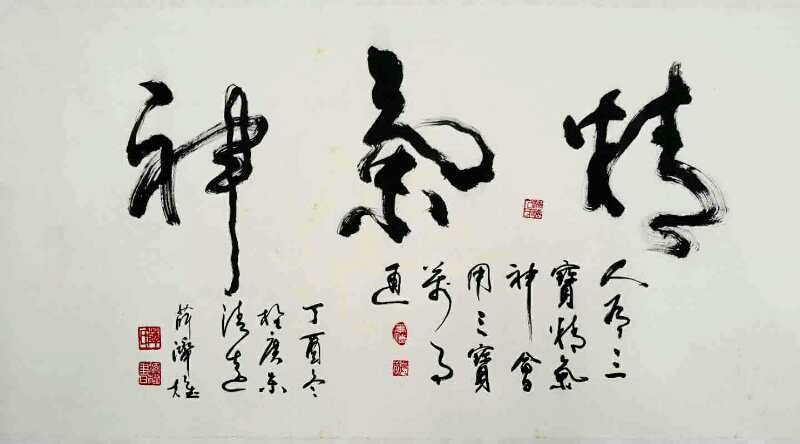 精氣神
人有三
寶精氣
神會
用三寶
萬事
通
丁酉冬
於廣東
清遠
薛雄